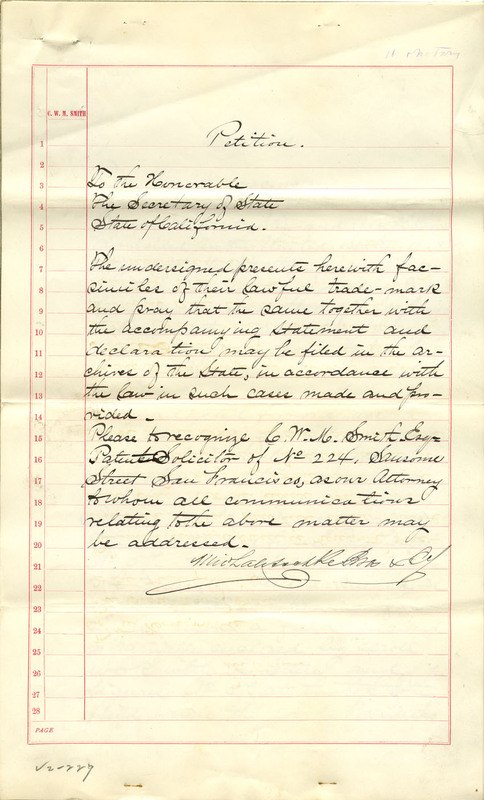 C. W. M. SMITH
Petition.
1
2
3 To the Honorable
4 The Secretary of State
5 State of California.
6
7 The undersigned presents herewith fac-
8 similes of their lawful trade-mark
9 and pray that the same together with
10 the accompanying statement and
11 declaration may be filed in the ar-
12 chives of the State, in accordance with
13 the law in such cases made and pro-
14 vided.
15 Please to recognize C. W. M. Smith Esq
16 Patent Solicitor of No 224. Sansome
17 Street San Francisco, as our Attorney
18 to whom all communications
19 relating to the above matter may
20 be addressed.
21
22
23
24
25
26
27
28
PAGE